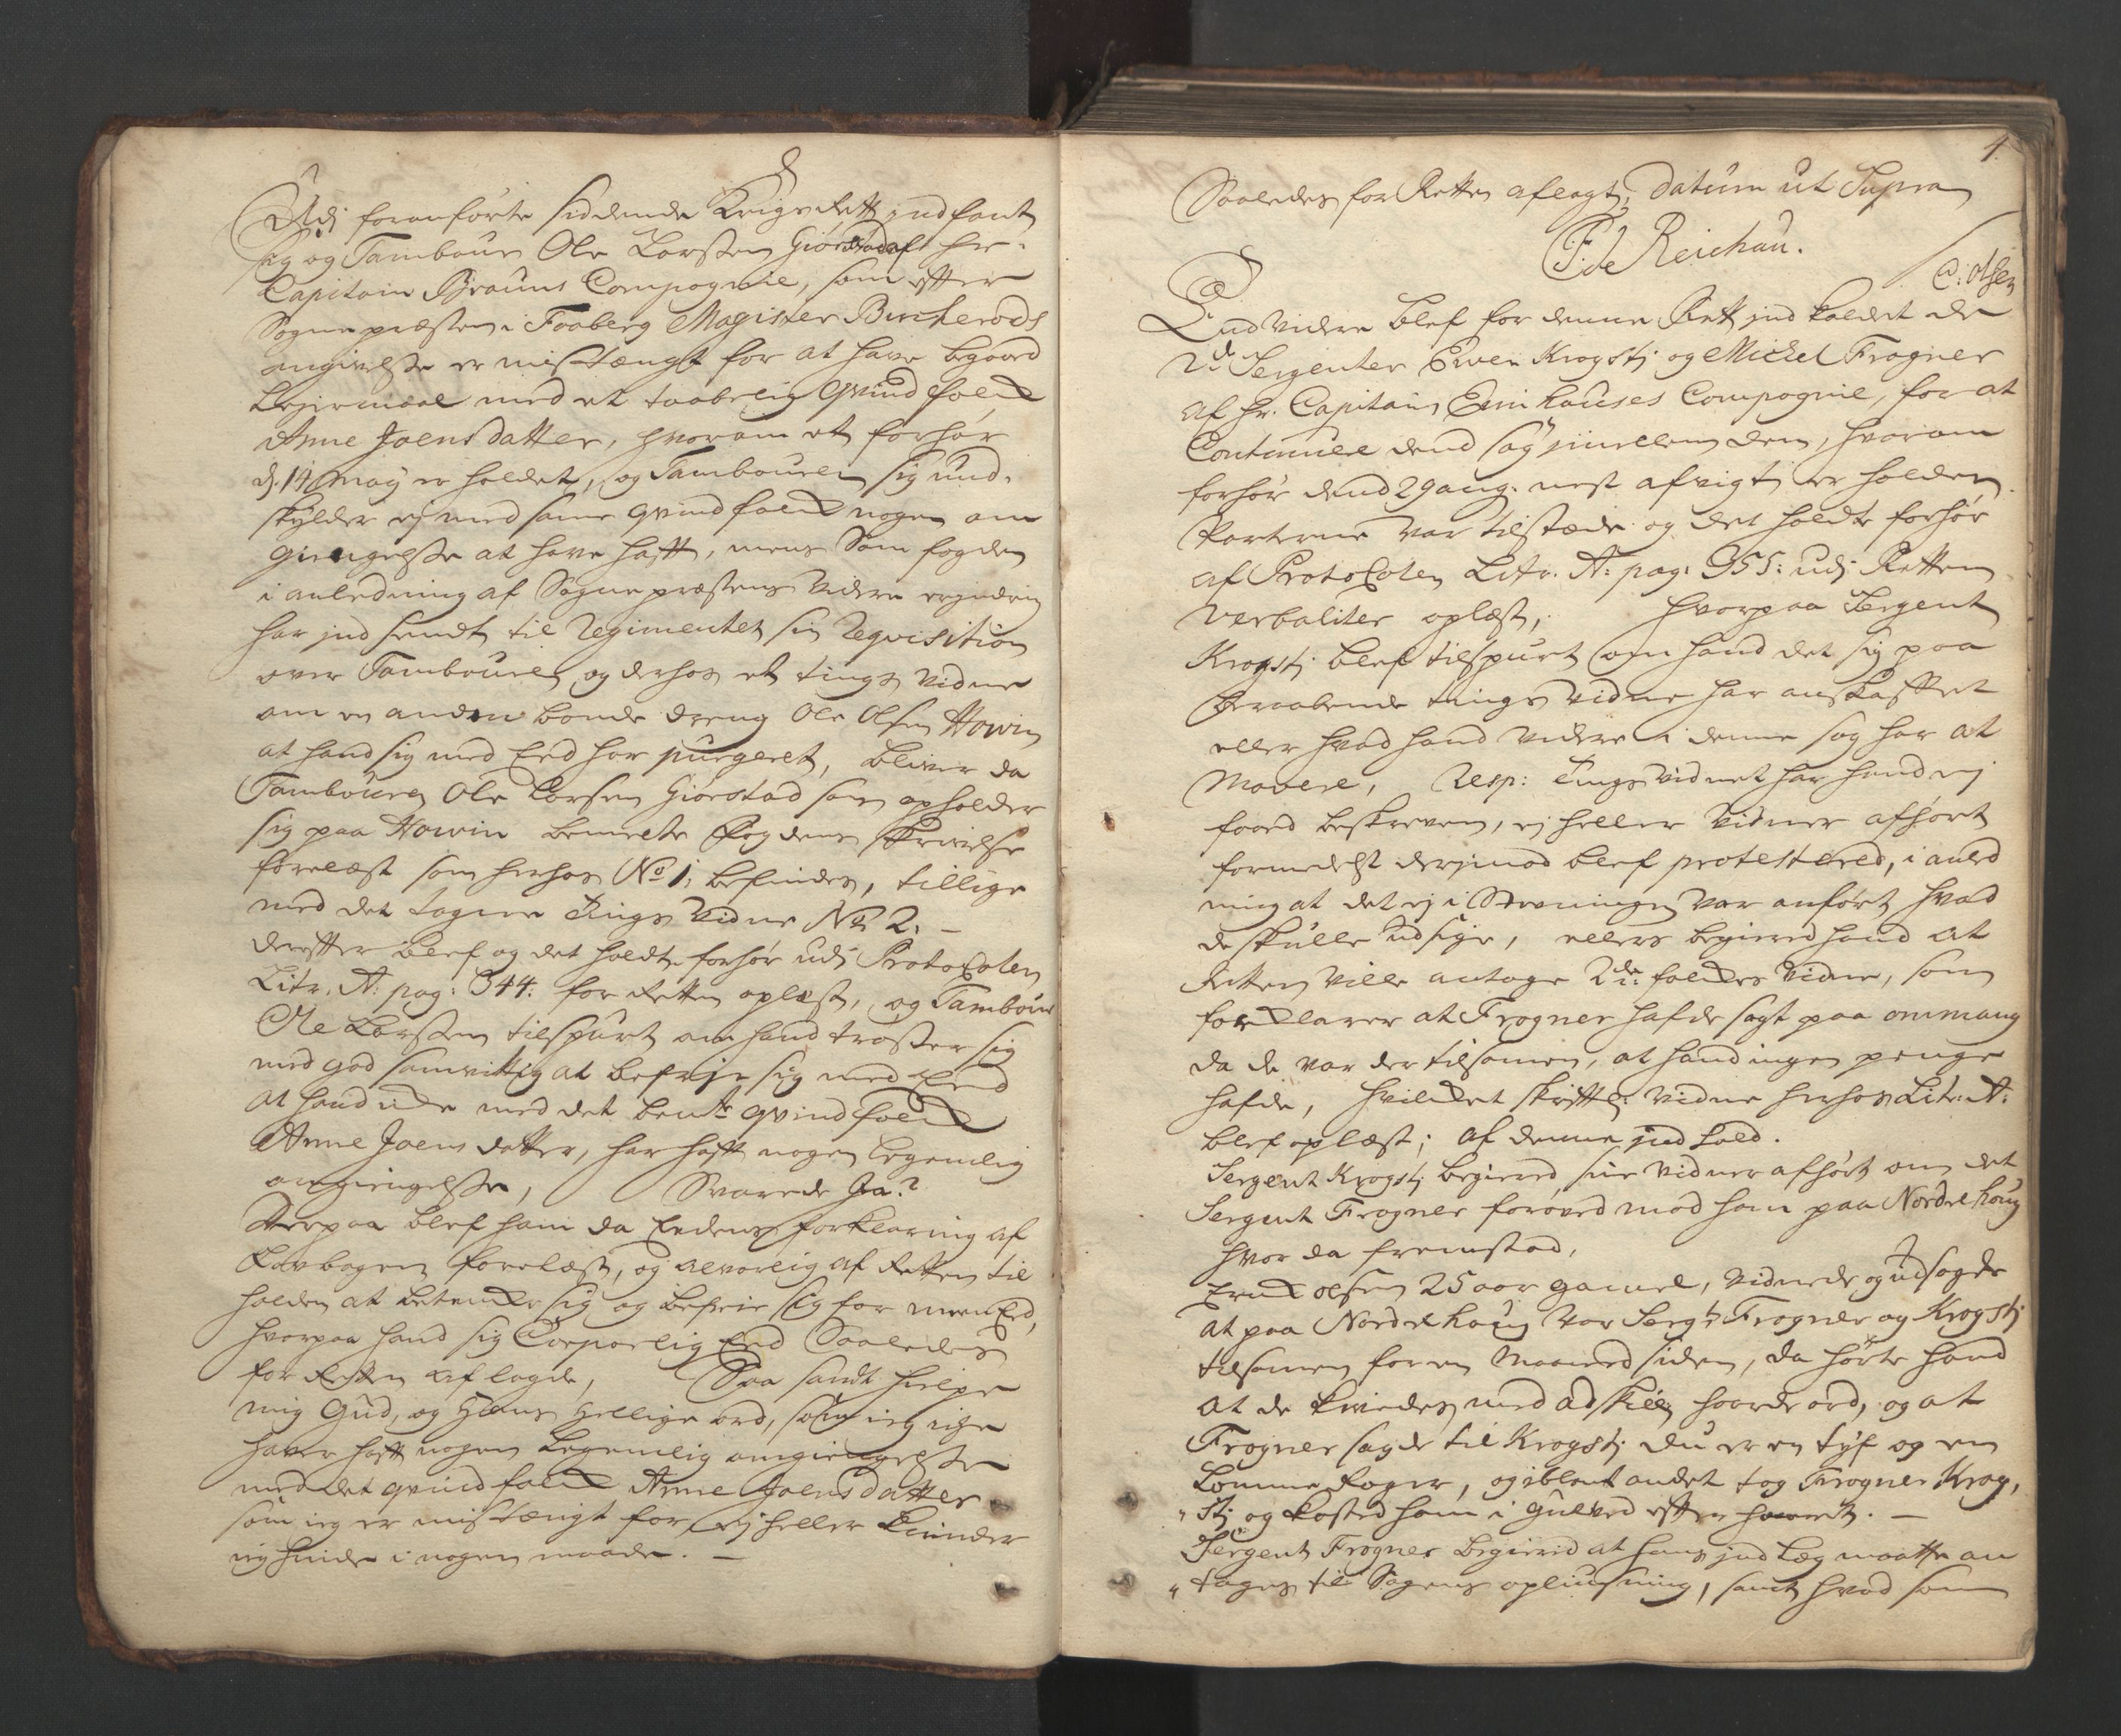 Udi foranførte siddende Krigs Rett jndfant
sig og Tambour Ole Larsen Giørstad af hr.
Capitain Brauns Compagnie, som efter
Sognepræsten i Faaberg Magister Bircherods
angivelse er mistængt for at have begaaed
Lejermaal med et taabelig qvindfolck
Anne Joensdatter, hvorom et forhør
d. 14 May er holdet, og Tambouren sig und-
skylder ej med same qvindfolck nogen om
giengelsse at have hafft, mens Som fogden
i anledning af Sognepræstens videre erindring
har jndsendt til Regimentet sin Reqvisition
over Tambouren, og derhos et tings vidne
om en anden bonde dreng Ole Olsen Howin
at hand sig med Eed har purgeret, bliver da
Tambouren Ole Larsen Giørstad som opholder
sig paa Howin bemelte Fogdens skrivelse
forelæst som herhos No 1, befindes, tillige
med det tagne Tings Vidne No 2. –
derefter blef og det holdte forhør udj Protocolen
Litr. A: pag: 344: for Retten oplæst, og Tambour
Ole Larsen tilspurt om hand trøster sig
med god samvittig at befrje sig med Eed
at hand icke med det bemte qvindfolck
Anne Joens datter, har hafft nogen legemlig
omgiengelsse, Svarede Ja?
Derpaa blef ham da Eedens forklaring af
Lovbogen forelæst, og alvorlig af Retten til
holden at betencke sig og befrie sig for meenEed,
hvorpaa hand sig Corporlig Eed Saaledes
for Retten aflagde, Saa sandt hielpe
mig Gud, og Hans Hellige ord, som jeg icke
haver hafft nogen Legemlig omgiengelsse
med det qvindfolck Anne Joensdatter
som jeg er mistængt for, ej heller kiender
jeg hinde i nogen maade. –
1.
Saaledes for Retten aflagt, datum ut Supra
F: de Reichau.
C: Olsen
End videre blef for denne Rett jnd kaldet de
2de Sergenter Ewen Krogstj og Michel Frogner
af hr. Capitain Emhauses Compagnie, for at
Continuere dend sag jmellem dem, hvorom
forhør dend 29 aug. nest afvigt er holden
Parterne var tilstæde og det holdte forhør
af Protocolen Litr. A: pag: 355: udj Retten
verbaliter oplæst, hvorpaa Sergent
Krogstj blef tilspurt om hand det sig paa
beraabende tings Vidne har anskaffet
eller hvad hand videre i denne sag har at
Movere, Resp: Tings Vidnet har hand ej
faaed beskreven, ej heller Vidner afhørt
formedelst derjmod blef protestered, i anled
ning at det ej i Stevningen var anført hvad
de skulle udsige, ellers begiered hand at
Retten ville antage 2de folckes Vidne, som
forklarer at Frogner hafde sagt paa ommang
da de var der tilsamen, at hand ingen penge
hafde, hvilcket skrifftl: Vidne herhos Litr: A:
blef oplæst; af denne jnd hold.
Sergent Krogstj begiered sine Vidner afhørt om det
Sergent Frogner forøved mod ham paa Nordre houg
hvor da fremstod,
Erick Olsen 25 aar gamel, Vidnede og udsagde
at paa Nordre houg var Sergt: Frogner og Krogstj
tilsamen for en Maaned siden, da hørte hand
at de kivedes med adskill: haarde ord, og at
Frogner sagde til Krogstj du er en tyf og en
Lomme Rager, og iblant andet tog Frogner Krog,
" stj og kasted ham i gulved efter haaret. –
Sergent Frogner begiered at hans jnd Læg maatte an
" tages til Sagens opliusning, samt hvad som